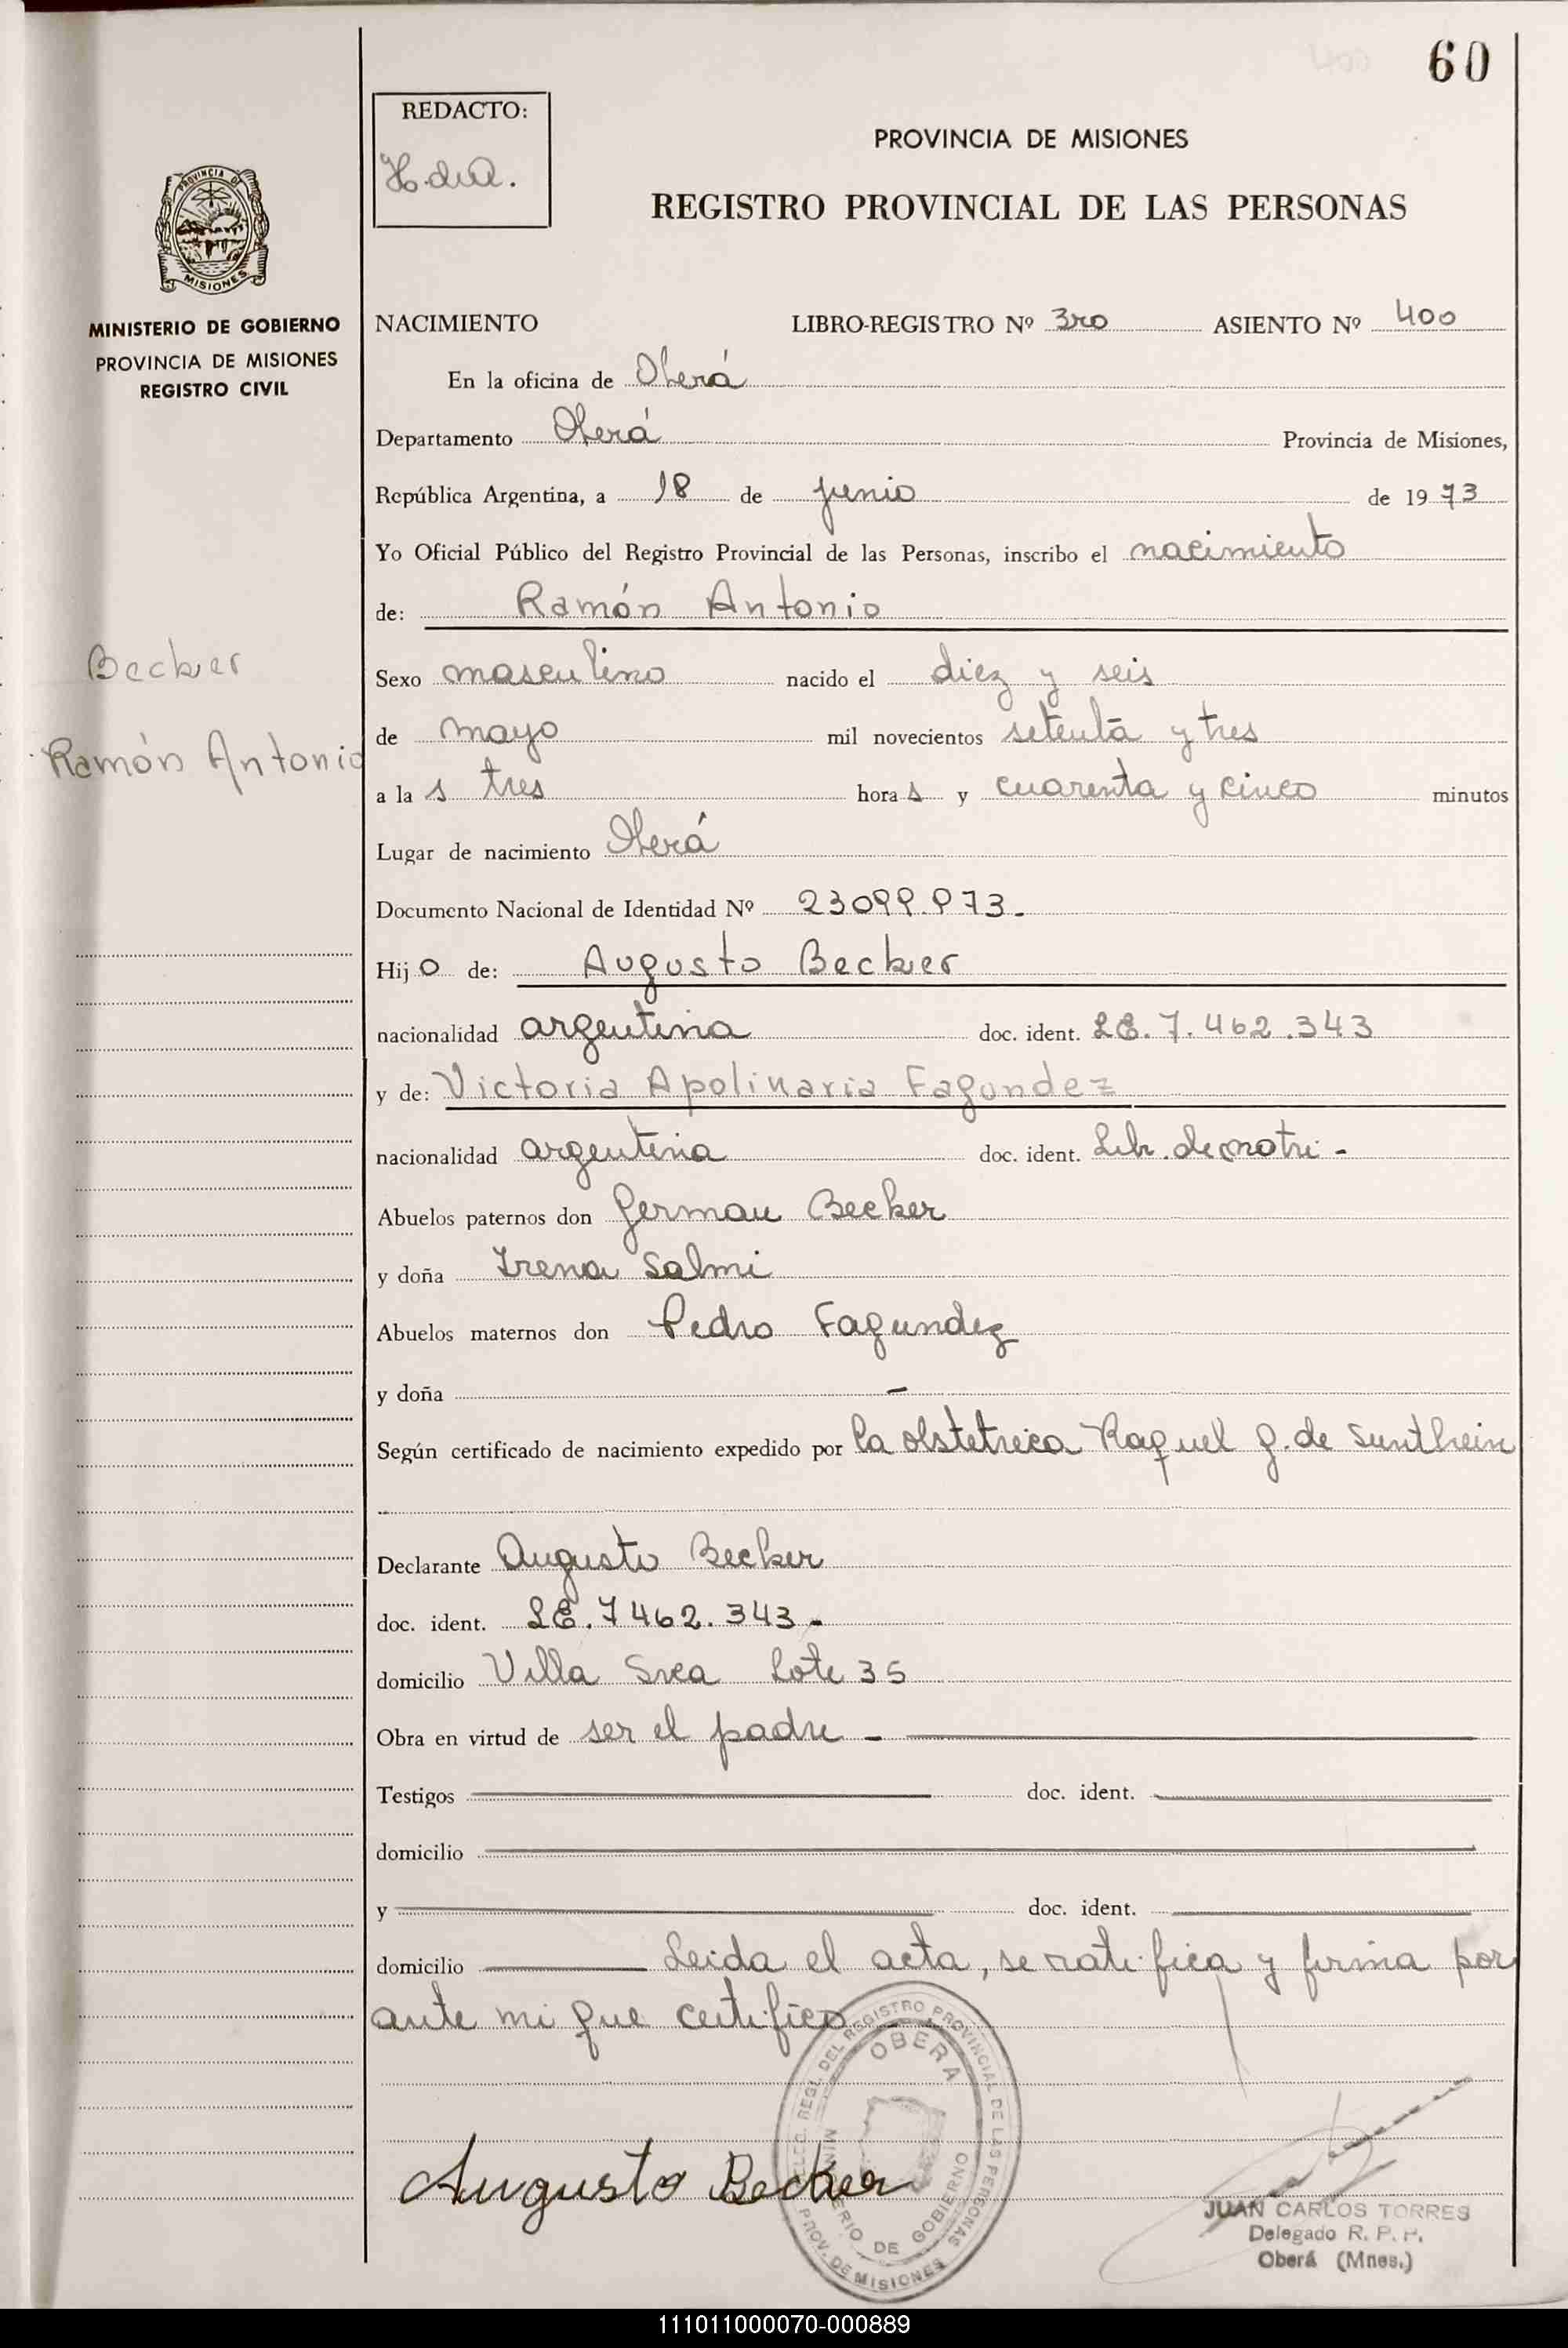 400
60
REDACTO:
H.d.A.
PROVINCIA DE MISIONES
REGISTRO PROVINCIAL DE LAS PERSONAS
PROVINCIA DE
MISIONES
MINISTERIO DE GOBIERNO
PROVINCIA DE MISIONES
REGISTRO CIVIL
NACIMIENTO LIBRO-REGISTRO Nº 3ro ASIENTO Nº 400
En la oficina de Oberá
Departamento Oberá Provincia de Misiones,
República Argentina, a 18 de junio de 1973
Yo Oficial Público del Registro Provincial de las Personas, inscribo el nacimiento
de: Ramón Antonio
Becker
Ramón Antonio
Sexo masculino nacido el diez y seis
de mayo mil novecientos setenta y tres
a la s tres hora s y cuarenta y cinco minutos
Lugar de nacimiento Oberá
Documento Nacional de Identidad Nº 23099.973.
Hijo de: Augusto Becker
nacionalidad argentina doc. ident. LE. 7.462.343
y de: Victoria Apolinaria Fagundez
nacionalidad argentina doc. ident. Lib. de matri -
Abuelos paternos don German Becker
y doña Irena Salmi
Abuelos maternos don Pedro Fagundez
y doña -
Según certificado de nacimiento expedido por la obstetrica Raquel G. de Sunthein
Declarante Augusto Becker
doc. ident. LE. 7462.343 -
domicilio Villa Svea Lote 35
Obra en virtud de ser el padre -
Testigos doc. ident.
domicilio
y doc. ident.
domicilio Leida el acta, se ratifica y firma por
ante mi que certifico
REGISTRO PROVINCIAL DE LAS PERSONAS
OBERA
MINISTERIO DE GOBIERNO
PROV. DE MISIONES
Augusto Becker
JUAN CARLOS TORRES
Delegado R. P. P.
Oberá (Mnes.)
111011000070-000889